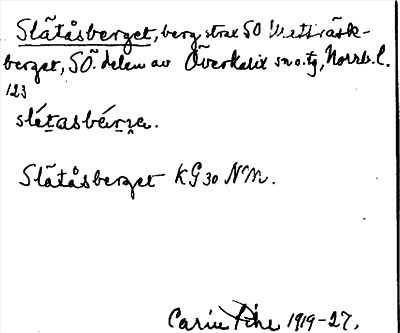 Slätåsberget, berg strax SO Vetträsk-
berget, SÖ. delen av Överkalix sn o. tg, Norrb. l.
123
slétasbérṛa.
Slätåsberget KG 30 NM.
Carin Pihl 1919-27.